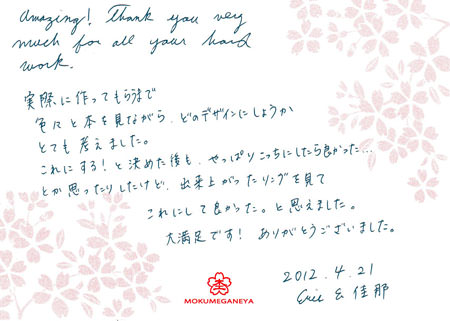 Amazing! Thank you very
much for all your hard
work.
実際に作ってもらうまで
色々と本を見ながら、どのデザインにしようか
とても考えました。
これにする!と決めた後も、やっぱりこっちにしたら良かった…
とか思ったりしたけど、出来上がったリングを見て
これにして良かった。と思えました。
大満足です! ありがとうございました。
2012.4.21
Eric & 佳那
MOKUMEGANEYA